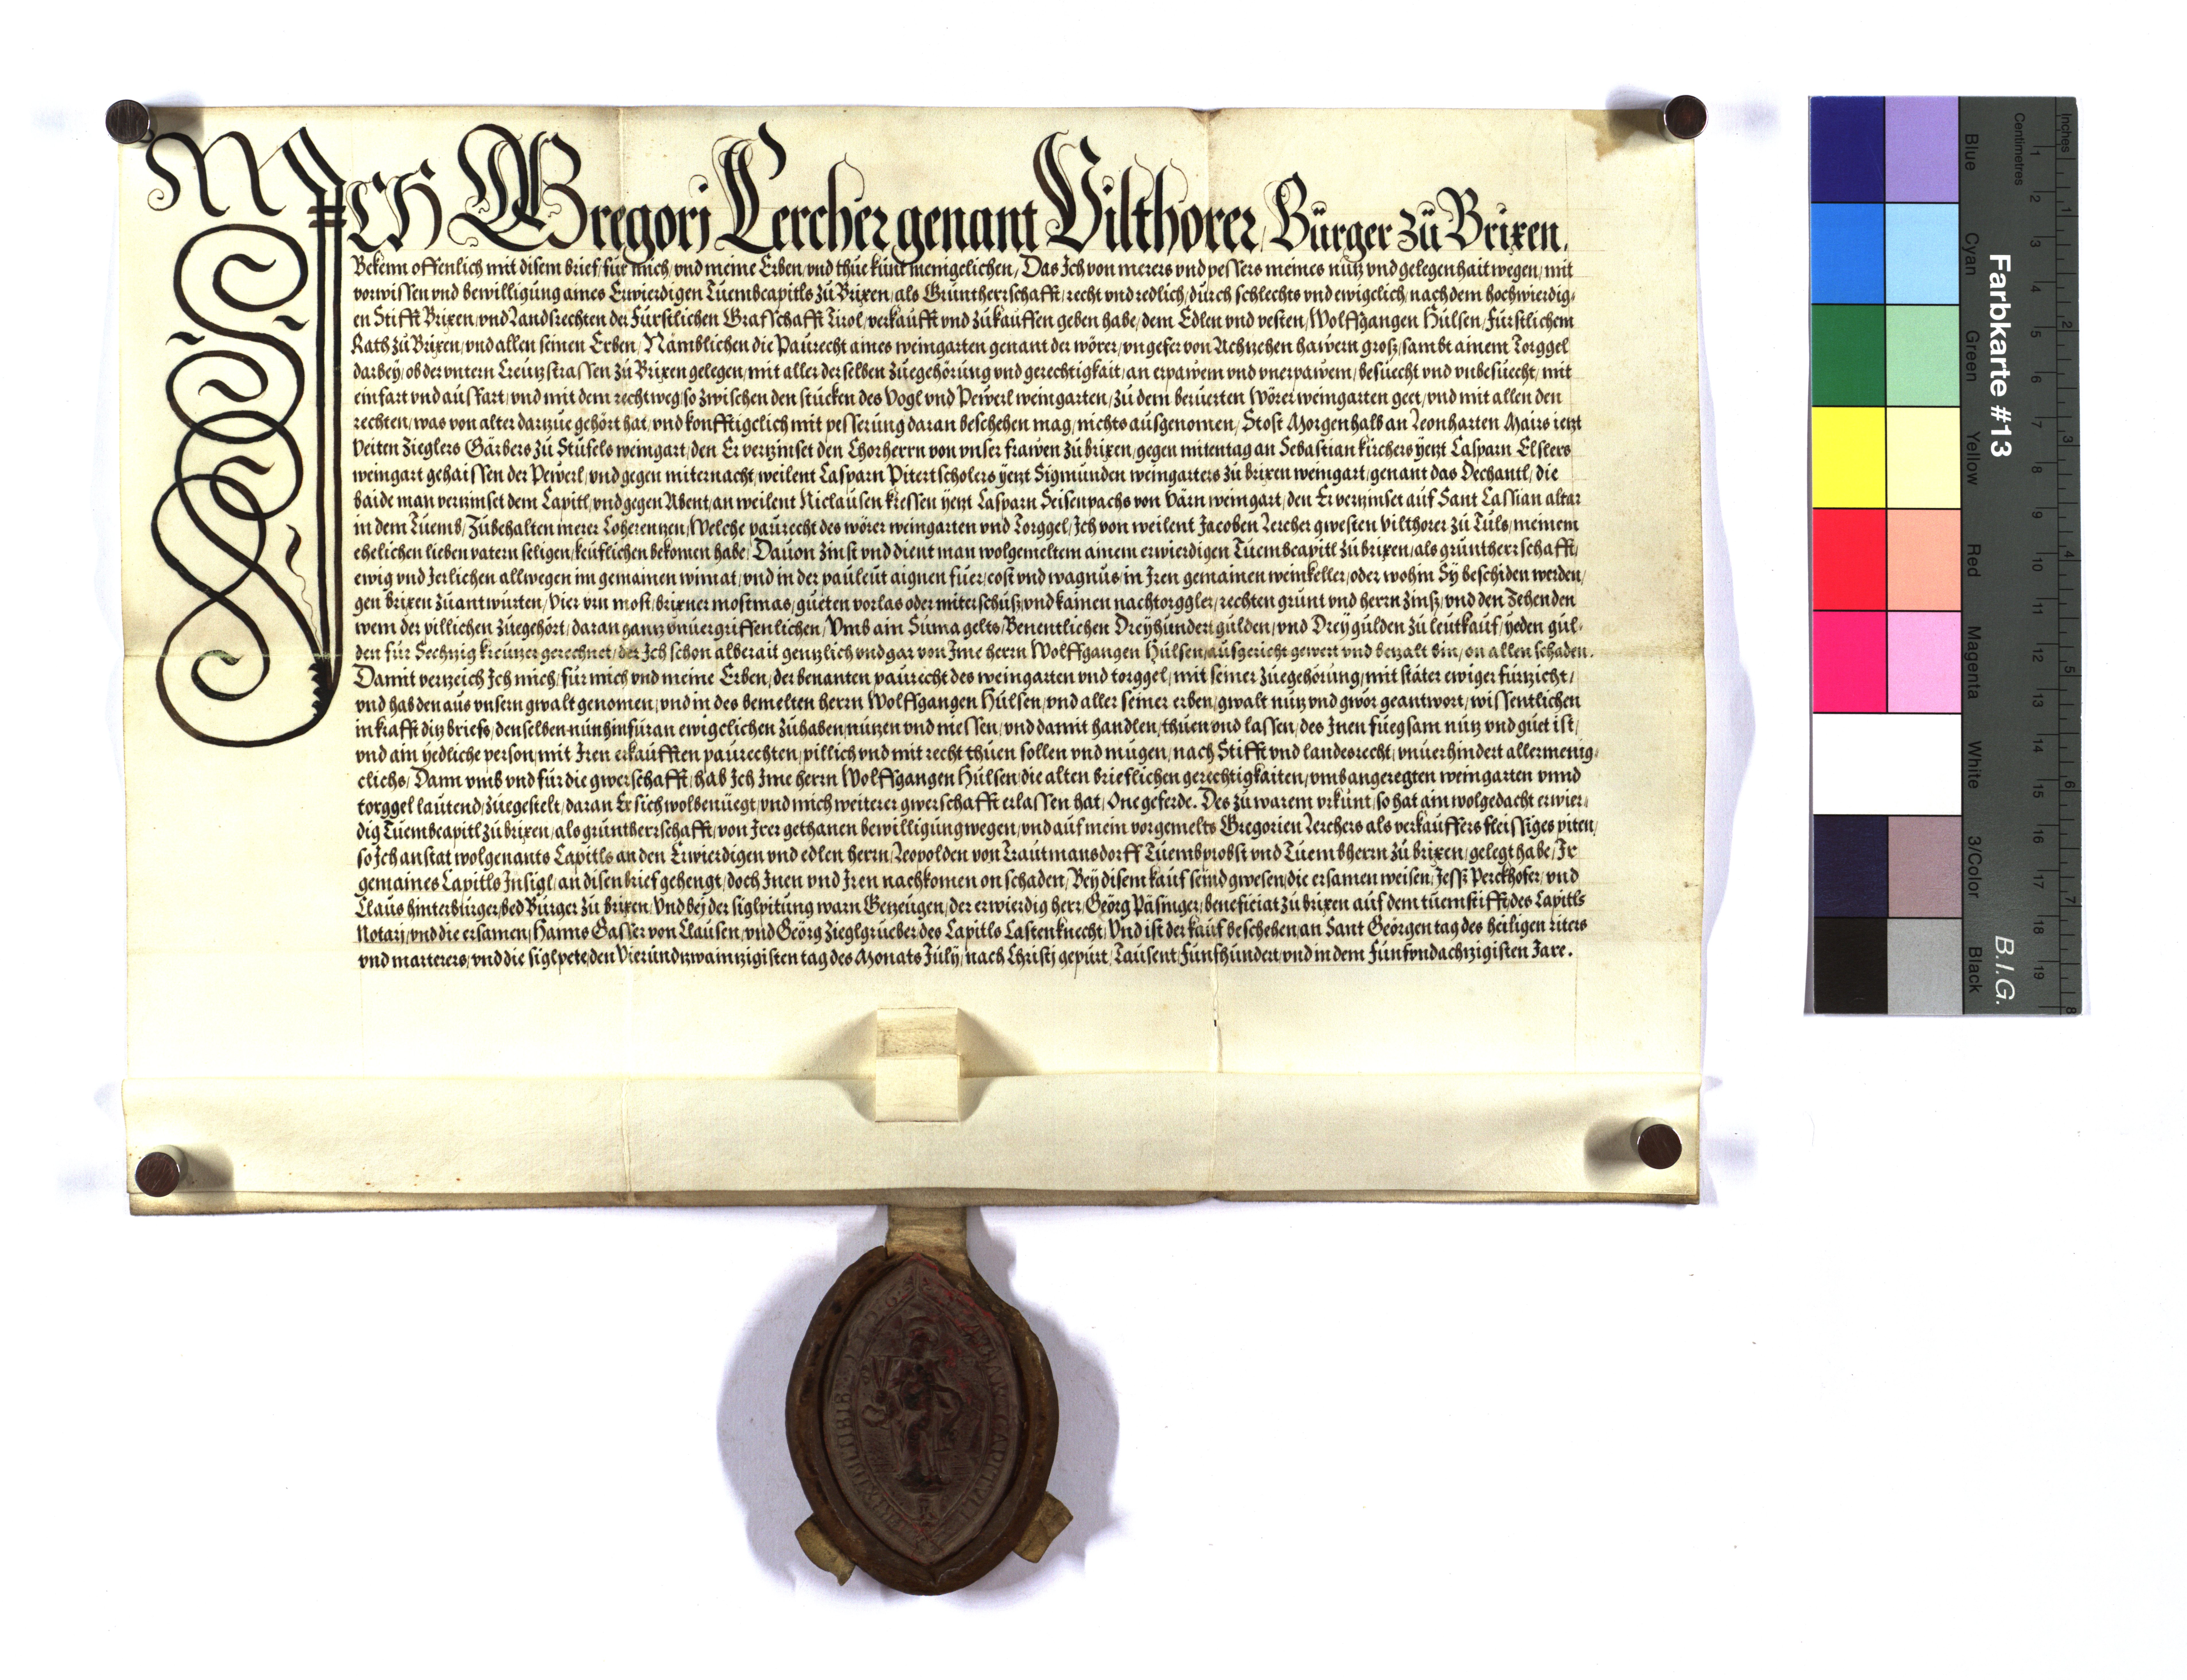 ICH Gregorj Lercher genant Vilthorer, Bürger zů Brixen,
Bekenn offenlich mit disem brief, für mich, vnd meine Erben, vnd thue kunt menigclichen, Das Ich von merers vnd pessers meines nutz vnd gelegenhait wegen, mit
vorwissen vnd bewilligung aines Erwierdigen Tuembcapitls zů Brixen, als Gruntherrschafft, recht vnd redlich, durch schlechts vnd ewigclich, nach dem hochwierdig,
en Stifft Brixen, vnd Landsrechten der Fürstlichen Grafschafft Tirol, verkaufft vnd zukauffen geben habe, dem Edlen vnd vesten, Wolffgangen Hülsen, Fürstlichem
Rath zů Brixen, vnd allen seinen Erben, Namblichen die Paurecht aines weingarten genant der wörer, vngefer von Achzehen hawern groß, sambt ainem Torggel
darbey, ob der vntern Creutzstrassen zů Brixen gelegen, mit aller derselben zuegehörung vnd gerechtigkait, an erpawem vnd vnerpawem, besuecht vnd vnbesuecht, mit
einfart vnd ausfart, vnd mit dem rechtweg, so zwischen den stucken des Vogl vnd Pewerl weingarten, zu dem beruerten Wörer weingarten geet, vnd mit allen den
rechten, was von alter darzue gehört hat, vnd konfftigclich mit pesserung daran beschehen mag, nichts ausgenomen, Stost Morgenhalb an Leonharten Mairs ietzt
Veiten Zieglers Gärbers zu Stufels weingart, den Er verzinset den Chorherrn von vnser frawen zů brixen, gegen mitentag an Sebastian kirchers yetzt Casparn Elslers
weingart gehaissen der Pewerl, vnd gegen miternacht, weilent Casparn Pitertscholers yetzt Sigmunden weingarters zů brixen weingart, genant das Dechantl, die
baide man verzinset dem Capitl, vnd gegen Abent, an weilent Niclausen kressen yetzt Casparn Seisenpachs von Värn weingart, den Er verzinset auf Sant Cassian altar
in dem Tuemb, Zubehalten merer Coherentzen, Welche paurecht des wörer weingarten vnd Torggel, Ich von weilent Jacoben Lercher gwesten Vilthorer zů Tuls, meinem
ehelichen lieben vatern seligen, keuflichen bekomen habe, Dauon zinst vnd dient man wolgemeltem ainem erwierdigen Tuembcapitl zů brixen, als gruntherrschafft,
ewig vnd Jerlichen allwegen im gemainen wimat, vnd in der pauleut aignen fuer, cost vnd wagnus, in Iren gemainen weinkeller, oder wohin Sy beschiden werden,
gen brixen zuantwurten, Vier vrn most, brixner mostmas, gueten vorlas oder miterschuß, vnd kainen nachtorggler, rechten grunt vnd herrn zinß, vnd den Zehenden
wem der pillichen zuegehört, daran gantz vnuergriffenlichen, Vmb ain Suma gelts, Benentlichen Dreyhundert gulden, vnd Drey gulden zu leutkauf, yeden gul,
den für Sechtzig kreutzer gerechnet, der Ich schon alberait gentzlich vnd gar von Ime herrn Wolffgangen Hülsen, ausgericht gewert vnd betzalt bin, on allen schaden.
Damit vertzeich Ich mich, für mich vnd meine Erben, der benanten paurecht des weingarten vnd torggel, mit seiner zuegehörung, mit stäter ewiger fürzicht,
vnd hab den aus vnsern gwalt genomen, vnd in des bemelten herrn Wolffgangen Hülsen, vnd aller seiner erben, gwalt nutz vnd gwör geantwort, wissentlichen
in krafft ditz briefs, denselben nunhinfüran ewigclichen zuhaben, nutzen vnd niessen, vnd damit handlen, thuen vnd lassen, des Inen fuegsam nutz vnd guet ist,
vnd ain yedliche person, mit Iren erkaufften paurechten, pillich vnd mit recht thuen sollen vnd mugen, nach Stifft vnd landesrecht, vnuerhindert allermenig,
clichs, Dann vmb vnd für die gwerschafft, hab Ich Ime herrn Wolffgangen Hülsen, die alten brieflichen gerechtigkaiten, vmb angeregten weingarten vnnd
torggel lautend, zuegestelt, daran Er sich wolbenüegt, vnd mich weiterer gwerschafft erlassen hat, Onegeferde. Des zu warem vrkunt, so hat ain wolgedacht erwier,
dig Tuembcapitl zů brixen, als gruntherrschafft, von Irer gethanen bewilligung wegen, vnd auf mein vorgemelts Gregorien Lerchers als verkauffers fleissiges piten,
so Ich anstat wolgenants Capitls an den Erwierdigen vnd edlen herrn, Leopolden von Trautmansdorff Tuembprobst vnd Tuembherrn zů brixen, gelegt habe, Ir
gemaines Capitls Insigl, an disen brief gehengt, doch Inen vnd Iren nachkomen on schaden, Bey disem kauf seind gwesen, die ersamen weisen, Jesß Perckhofer, vnd
Claus hinterburger, bed Burger zů brixen, Vnd bej der siglpitung warn Getzeugen, der erwierdig herr, Geörg Päsinger, beneficiat zů brixen auf dem tuemstifft, des Capitls
Notarj, vnd die ersamen, Hanns Gasser von Clausen, vnd Geörg Zieglgrueber des Capitls Castenknecht, Vnd ist der kauf beschehen, an Sant Geörgen tag des heiligen riters
vnd marterers, vnd die siglpete, den Vierundzwaintzigisten tag des Monats July, nach Christj gepurt, Tausent Funfhundert, vnd in dem Funfvndachtzigisten Jare.
Farbkarte #13
B.I.G.
Inches
Centimetres
1 2 3 4 5 6 7 8 9 10 11 12 13 14 15 16 17 18 19
1 2 3 4 5 6 7 8
Blue Cyan Green Yellow Red Magenta White 3/Color Black